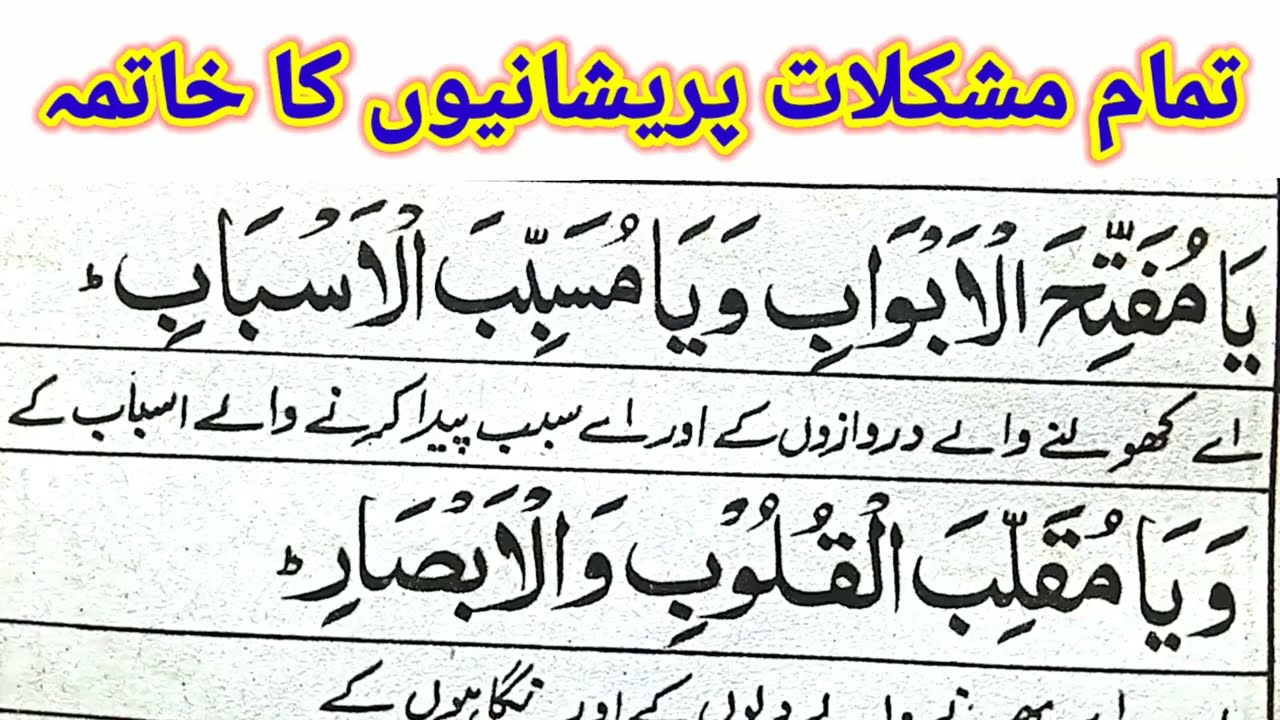 تمام مشکلات پریشانیوں کا خاتمہ
یَا مُفَتِّحَ الْاَبْوَابِ وَیَا مُسَبِّبَ الْاَسْبَابِ ؕ
اے کھولنے والے دروازوں کے اور اے سبب پیدا کرنے والے اسباب کے
وَیَا مُقَلِّبَ الْقُلُوْبِ وَالْاَبْصَارِ ؕ
دلوں کے اور نگاہوں کے